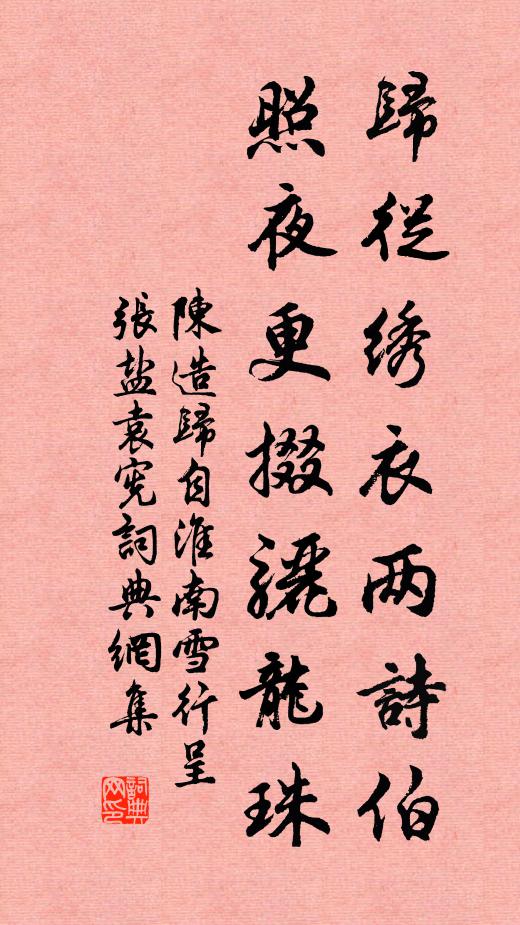 歸從綉衣两詩伯
照夜更掇驪龍珠
陳造歸自淮南雪行呈
張盐袁宪詞典網集
詞典网印